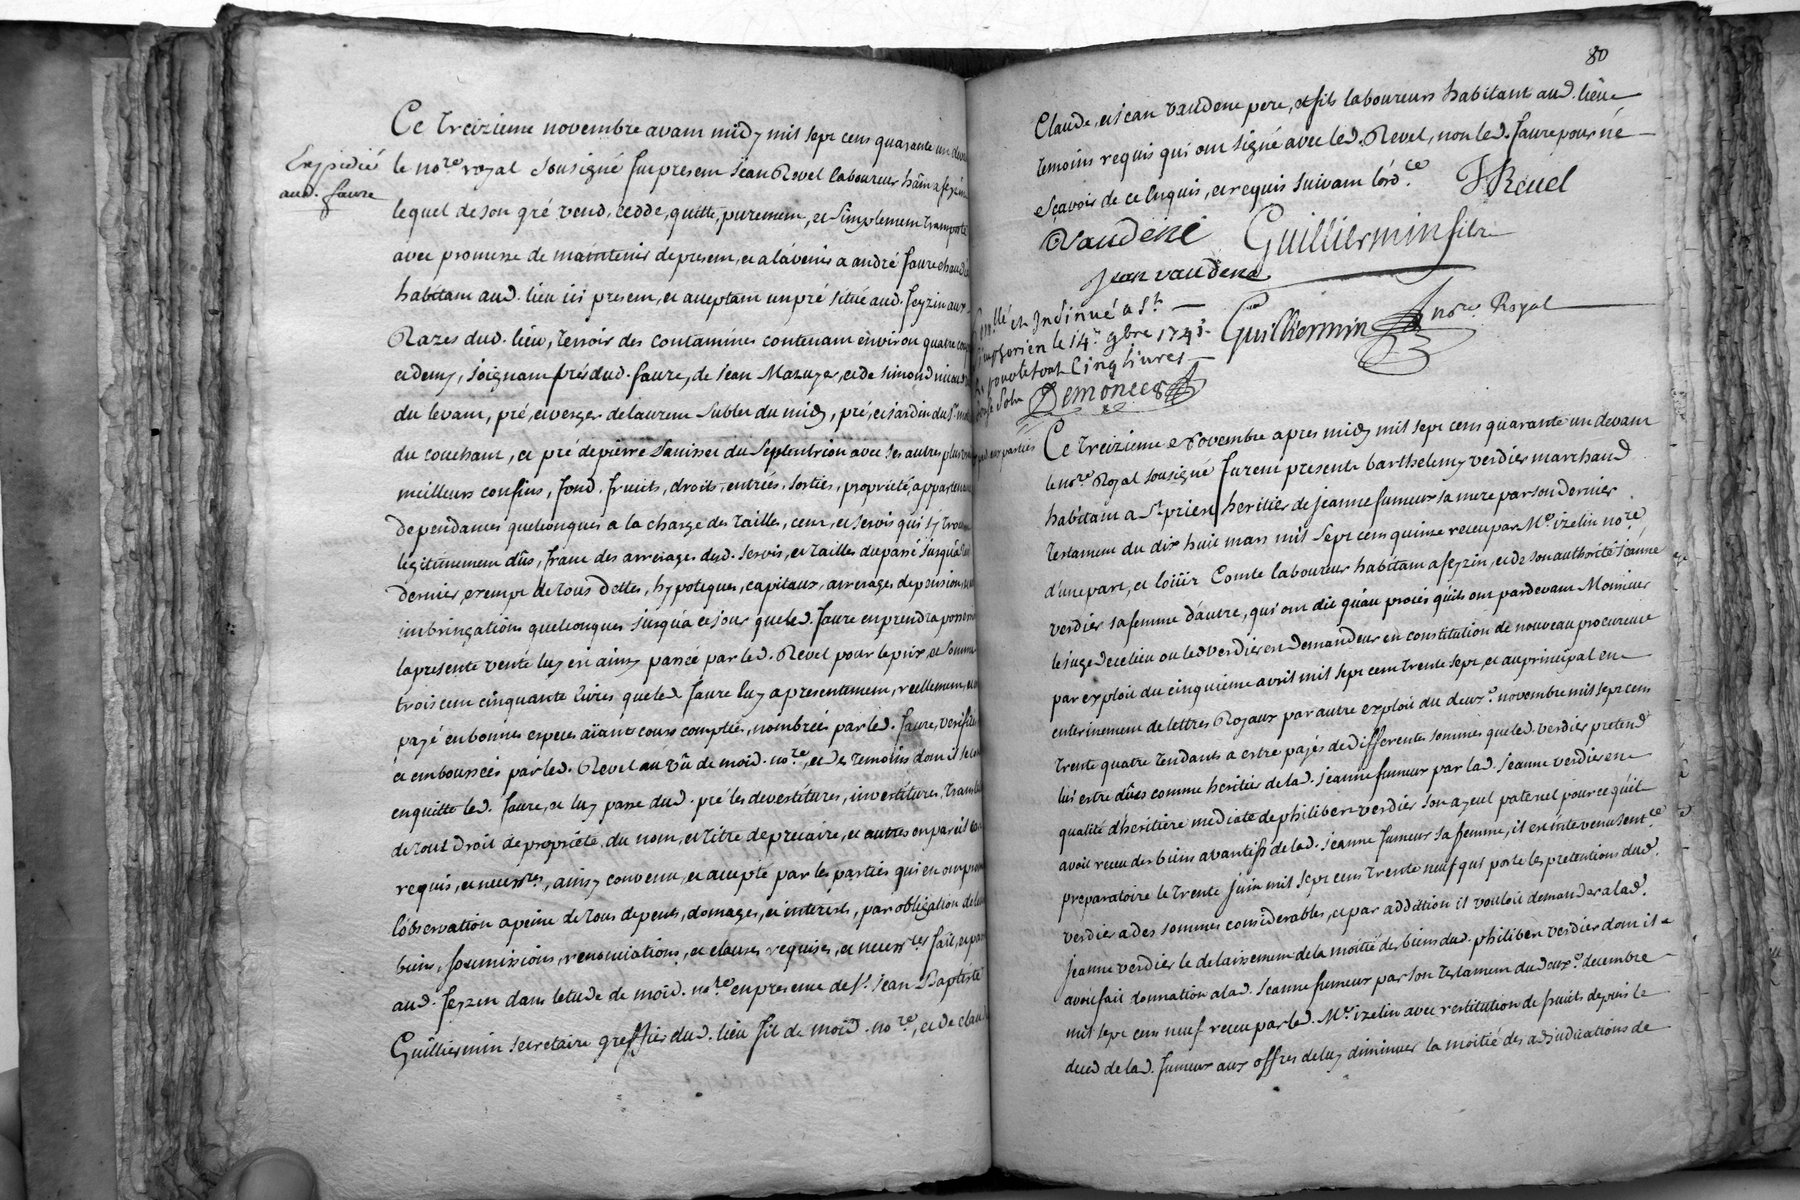 Ce treizieme novembre avant midy mil sept cens quarante un devant
Expedié
aud. faure
le nore royal sousigné fut present jean Revel laboureur hãnt a feyzin
lequel de son gré vend, cedde, quitte, purement, et simplement transporte
avec promesse de maintenir de present, et a lavenir a andré faure
habitant aud. lieu ici present, et acceptant un pré situé aud. feyzin aux
Razes dud. lieu, terroir des contamines contenant environ quatre
et demy, joignant prés dud. faure, de jean Mazuyer, et de simond
du levant, pré, et verger de laurent Sublet du midy, pré, et jardin du Sr.
du couchant, et pré de pierre Janisset du septentrion avec ses autres plus
meilleurs confins, fond, fruits, droits, entrées, sorties, proprieté, appartenances
dependances quelconques a la charge des tailles, cens, et servis qui sy
legitimement dûs, franc des arrerages dud. servis, et tailles du passé jusqu'a
dernier, exempt de tous dettes, hypoteques, capitaux, arrerages de pensions
imbringations quelconques jusqu'a ce jour que led. faure en prendra
la presente vente luy en ainsy passée par led. Revel pour le prix, et somme
trois cent cinquante livres que led. faure luy a presentement, reellement
payé en bonnes especes aïant cours comptée, nombrée par led. faure, verifiée
et emboursée par led. Revel au vû de moid. nore, et des temoins dont il se
en quitte led. faure, et luy passe dud. pré les devestitures, investitures,
de tout droit de proprieté, du nom, et titre de precaire, et autres en pareil cas
requis, et necessres, ainsy convenu, et accepté par les parties qui en ont promis
l'observation a peine de tous depens, domages, et interests, par obligation de leurs
biens, soumissions, renonciations, et clauses requises, et necessres fait, et passé
aud. feyzin dans letude de moid. nore en presence de Sr. jean Baptiste
Guilliermin secretaire greffier dud. lieu fils de moid. nore, et de claude
80
Claude, et jean vaudene pere, et fils laboureurs habitants aud. lieu
temoins requis qui ont signé avec led. Revel, non led. faure pour ne
scavoir de ce enquis, et requis suivant lordce
J Revel
C Vaudene
Guilliermin fils
jean vaudene
Guilliermin nore Royal
et Insinué a St.
le 14e 9bre 1741.
Cinq livres
Demonceg
parties
Ce treizieme Novembre apres midy mil sept cens quarante un devant
le nore Royal sousigné furent presents barthelemy verdier marchand
habitant a St. priest heritier de jeanne fumeux sa mere par son dernier
testament du dix huit mars mil sept cens quinze receu par Me. izelin nore
d'une part, et loüir Comte laboureur habitant a feyzin, et de son authorité jeanne
verdier sa femme d'autre, qui ont dit qu'au procés qu'ils ont pardevant Monsieur
le juge de ce lieu ou led. verdier en demandeur en constitution de nouveau procureur
par exploit du cinquieme avril mil sept cent trente sept, et au principal en
enterinement de lettres Royaux par autre exploit du deuxe. novembre mil sept cens
trente quatre tendants a estre payés de differentes sommes que led. verdier pretend
lui estre dûes comme heritier de lad. jeanne fumeux par lad. jeanne verdier en
qualité d'heritiere mediate de philibert verdier son ayeul paternel pour ce qu'il
avoit receu des biens avantifs de lad. jeanne fumeux sa femme, il en intervenu sentce
preparatoire le trente juin mil sept cens trente neuf qui porte les pretentions dud.
verdier a des sommes considerables, et par addition il vouloit demander a lad.
jeanne verdier le delaissement de la moitié des biens dud. philibert verdier dont il
avoit fait donnation a lad. jeanne fumeux par son testament du deuxe. decembre
mil sept cens neuf receu par led. Me. izelin avec restitution de fruits depuis le
deced de lad. fumeux aux offres de luy diminuer la moitié des adjudications de